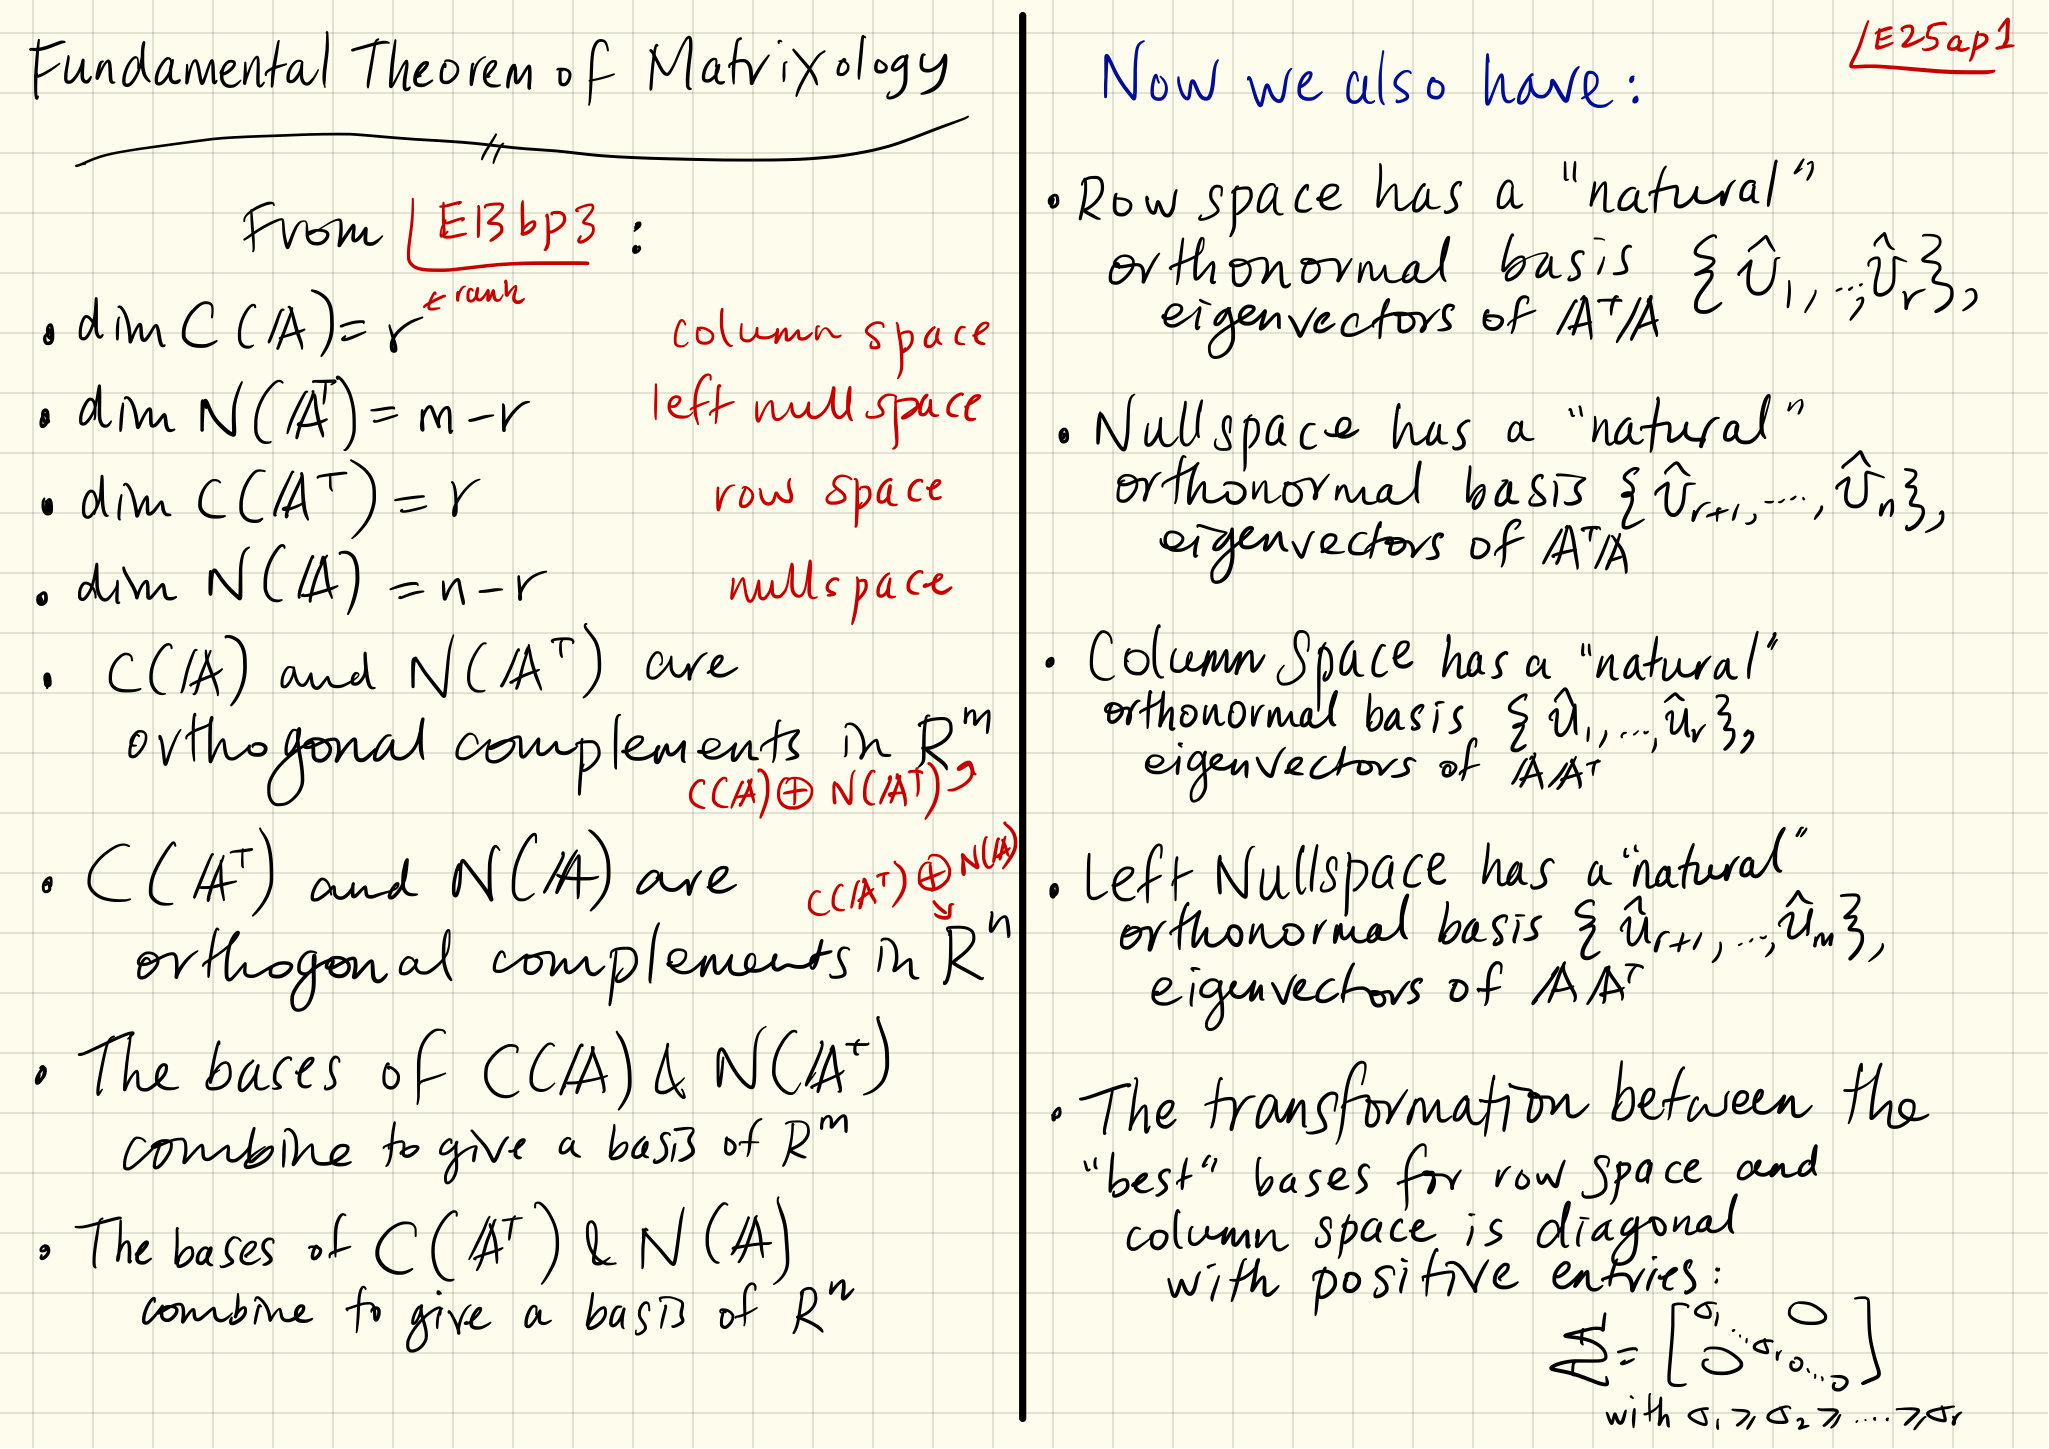 Fundamental Theorem of Matrixology
From E13bp3 :
• dim C(𝔸) = r ← rank column space
• dim N(𝔸ᵀ) = m-r left nullspace
• dim C(𝔸ᵀ) = r row space
• dim N(𝔸) = n-r nullspace
• C(𝔸) and N(𝔸ᵀ) are
orthogonal complements in Rᵐ
C(𝔸) ⊕ N(𝔸ᵀ)
• C(𝔸ᵀ) and N(𝔸) are
C(𝔸ᵀ) ⊕ N(𝔸)
orthogonal complements in Rⁿ
• The bases of C(𝔸) & N(𝔸ᵀ)
combine to give a basis of Rᵐ
• The bases of C(𝔸ᵀ) & N(𝔸)
combine to give a basis of Rⁿ
E25ap1
Now we also have:
• Row space has a "natural"
orthonormal basis { v̂₁, ..., v̂ᵣ},
eigenvectors of 𝔸ᵀ𝔸
• Nullspace has a "natural"
orthonormal basis { v̂ᵣ₊₁, ...., v̂ₙ},
eigenvectors of 𝔸ᵀ𝔸
• Column Space has a "natural"
orthonormal basis { û₁, ..., ûᵣ},
eigenvectors of 𝔸𝔸ᵀ
• Left Nullspace has a "natural"
orthonormal basis { ûᵣ₊₁, ..., ûₘ},
eigenvectors of 𝔸𝔸ᵀ
• The transformation between the
"best" bases for row space and
column space is diagonal
with positive entries:
Σ = [σ₁ 0
0 ... σᵣ 0 ... 0]
with σ₁ ≥ σ₂ ≥ .... ≥ σᵣ